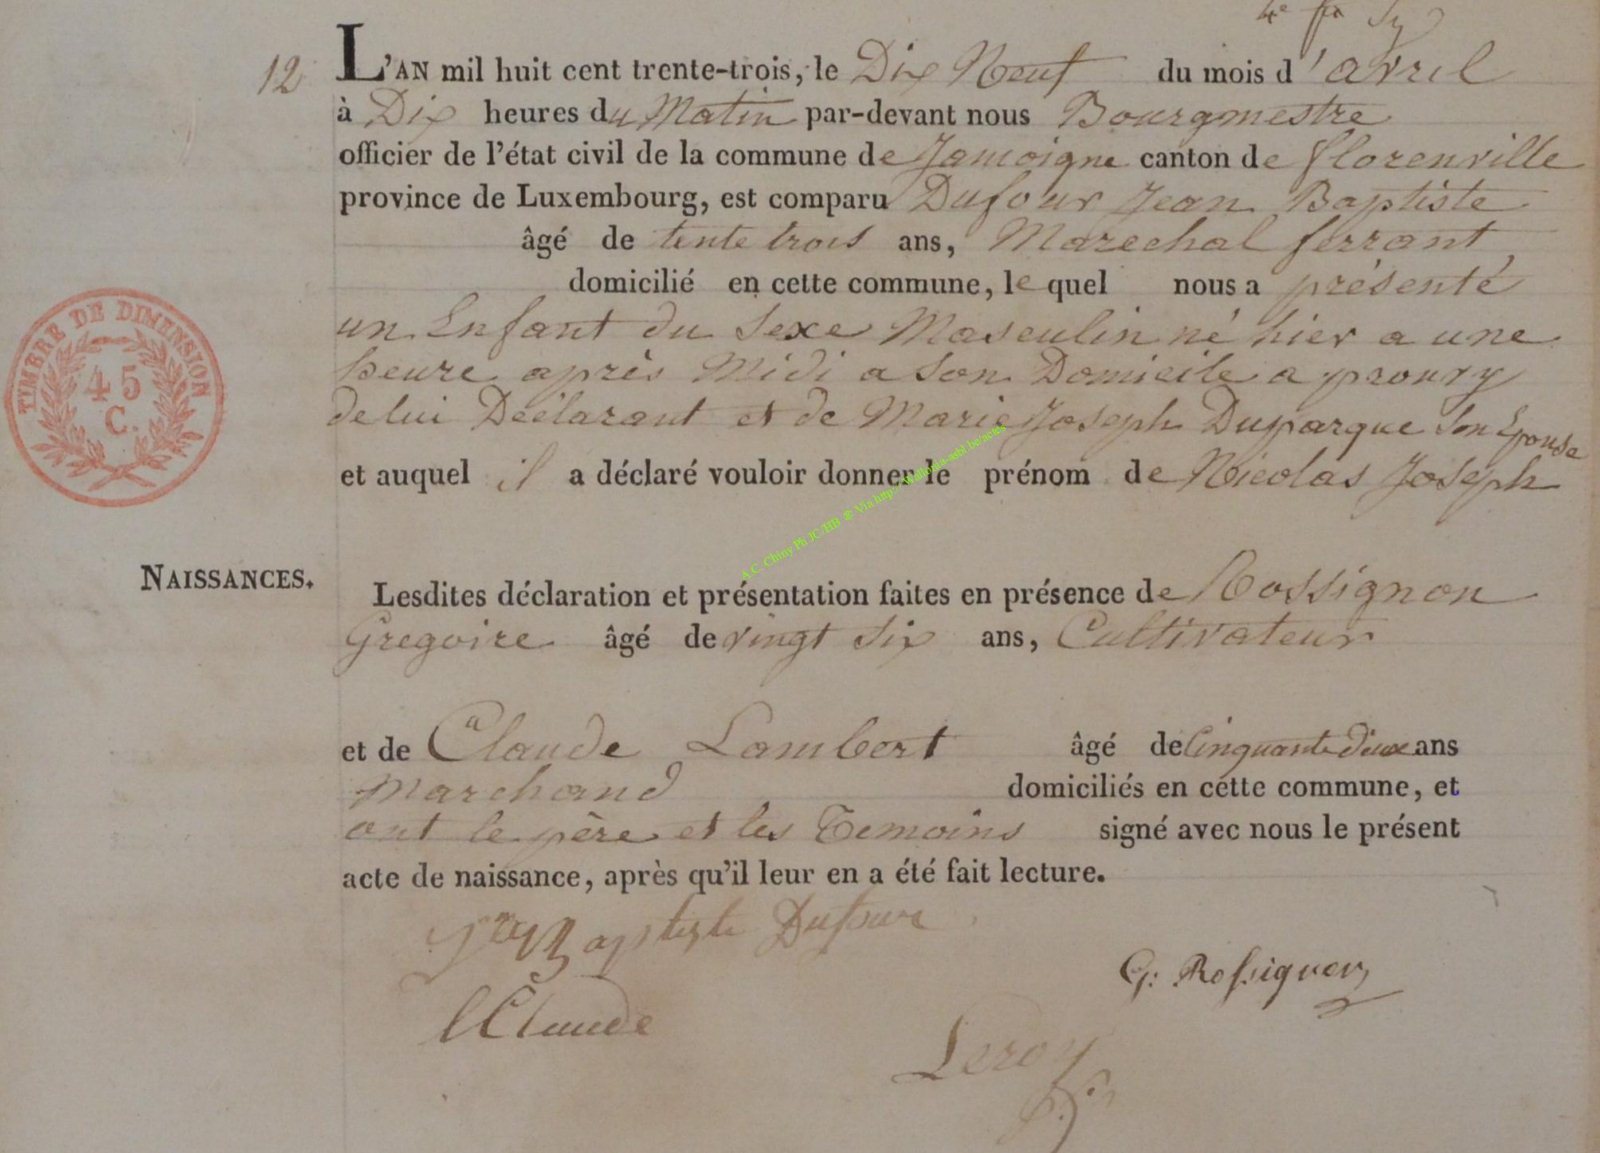 12
L'AN mil huit cent trente-trois, le Dix Neuf du mois d'avril
à Dix heures du Matin par-devant nous Bourgmestre
officier de l'état civil de la commune de Jamoigne canton de florenville
province de Luxembourg, est comparu Dufour Jean Baptiste
âgé de tente trois ans, Marechal ferrant
domicilié en cette commune, le quel nous a présenté
un Enfant du Sexe Masculin né hier a une
heure après Midi a Son Domicile a prouvy
de lui Déclarant et de Marie Joseph Duparque Son Epouse
et auquel il a déclaré vouloir donner le prénom de Nicolas Joseph
TIMBRE DE DIMENSION
45
C.
A.C. Chiny Ph JC-HB © Via
NAISSANCES.
Lesdites déclaration et présentation faites en présence de Rossignon
Gregoire âgé de vingt Six ans, Cultivateur
et de Claude Lambert âgé de Cinquante deux ans
Marchand domiciliés en cette commune, et
ont le père et les Temoins signé avec nous le présent
acte de naissance, après qu'il leur en a été fait lecture.
Baptiste Dufour
G. Rossignon
l Claude
Leroy